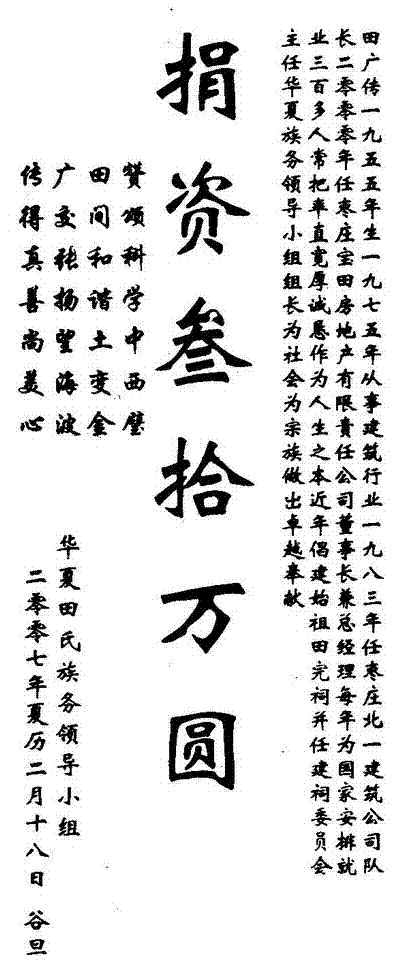 田广传一九五五年生一九七五年从事建筑行业一九八三年任枣庄北一建筑公司队
长二零零零年任枣庄宝田房地产有限责任公司董事长兼总经理每年为国家安排就
业三百多人常把率直宽厚诚恳作为人生之本近年倡建始祖田完祠并任建祠委员会
主任华夏族务领导小组组长为社会为宗族做出卓越奉献
捐资叁拾万圆
赞颂科学中西璧
田间和谐土变金
广交张扬望海波
传得真善尚美心
华夏田氏族务领导小组
二零零七年夏历二月十八日 谷旦